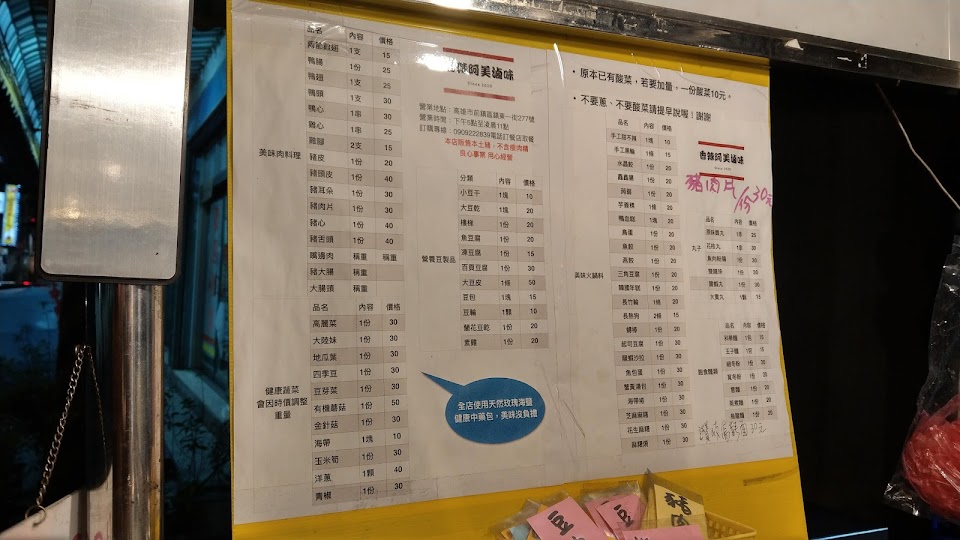 品名 內容 價格
1支 15
鴨腸 1份 25
鴨翅 1支 25
鴨頭 1支 30
鴨心 1串 30
雞心 1串 25
雞腳 2支 15
豬皮 1份 20
豬頭皮 1份 40
豬耳朵 1份 30
豬肉片 1份 30
豬心 1份 40
豬舌頭 1份 40
嘴邊肉 稱重 稱重
豬大腸 稱重
大腸頭 稱重
美味肉料理
品名 內容 價格
高麗菜 1份 30
大陸妹 1份 30
地瓜葉 1份 30
四季豆 1份 30
豆芽菜 1份 30
有機蘑菇 1份 50
金針菇 1份 30
海帶 1塊 10
玉米筍 1份 30
洋蔥 1顆 40
青椒 1份 30
健康蔬菜
會因時價調整
重量
阿美滷味
營業地點：高雄市前鎮區鎮東一街277號
營業時間：下午5點至凌晨11點
訂購專線：0909222839電話訂餐店取餐
本店販售本土豬，不含瘦肉精
良心事業 用心經營
分類 內容 價格
小豆干 1塊 10
大豆乾 1塊 20
1份 20
魚豆腐 1份 20
凍豆腐 1份 15
百頁豆腐 1份 30
大豆皮 1條 50
豆包 1塊 15
豆輪 1顆 10
蘭花豆乾 1份 20
素雞 1份 20
營養豆製品
全店使用天然玫瑰海鹽
健康中藥包，美味沒負擔
• 原本已有酸菜，若要加量，一份酸菜10元。
• 不要蔥、不要酸菜請提早說喔！謝謝
品名 內容 價格
手工甜不辣 1塊 10
手工黑輪 1條 15
水晶餃 1份 20
1份 20
1份 20
芋簽粿 1條 20
鴨血糕 1塊 20
鳥蛋 1份 20
魚餃 1份 20
1份 20
三角豆腐 1份 20
韓國年糕 1份 20
長竹輪 1條 20
長熱狗 2條 15
1份 20
起司豆腐 1份 30
龍蝦沙拉 1份 30
魚包蛋 1份 30
蟹黃湯包 1份 30
海帶捲 1份 30
芝麻麻糬 1份 30
花生麻糬 1份 30
1份 30
美味火鍋料
香辣阿美滷味
豬肉片/份30元
品名 內容 價格
1份 25
花枝丸 1串 30
1份 30
1份 30
1份 30
1顆 15
丸子
品名 內容 價格
科學麵 1包 10
王子麵 1包 15
1份 20
1份 20
意麵 1份 20
1份 20
1份 20
豆
豬肉